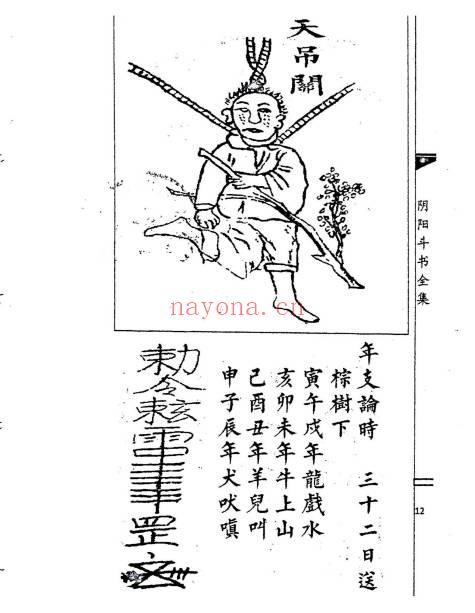 天吊關
阴阳斗书全集
nayona.cn
年支論時 三十二日送
棕樹下
寅午戌年龍戲水
亥卯未年牛上山
己酉丑年羊兒叫
申子辰年犬吠嗔
勅令
12